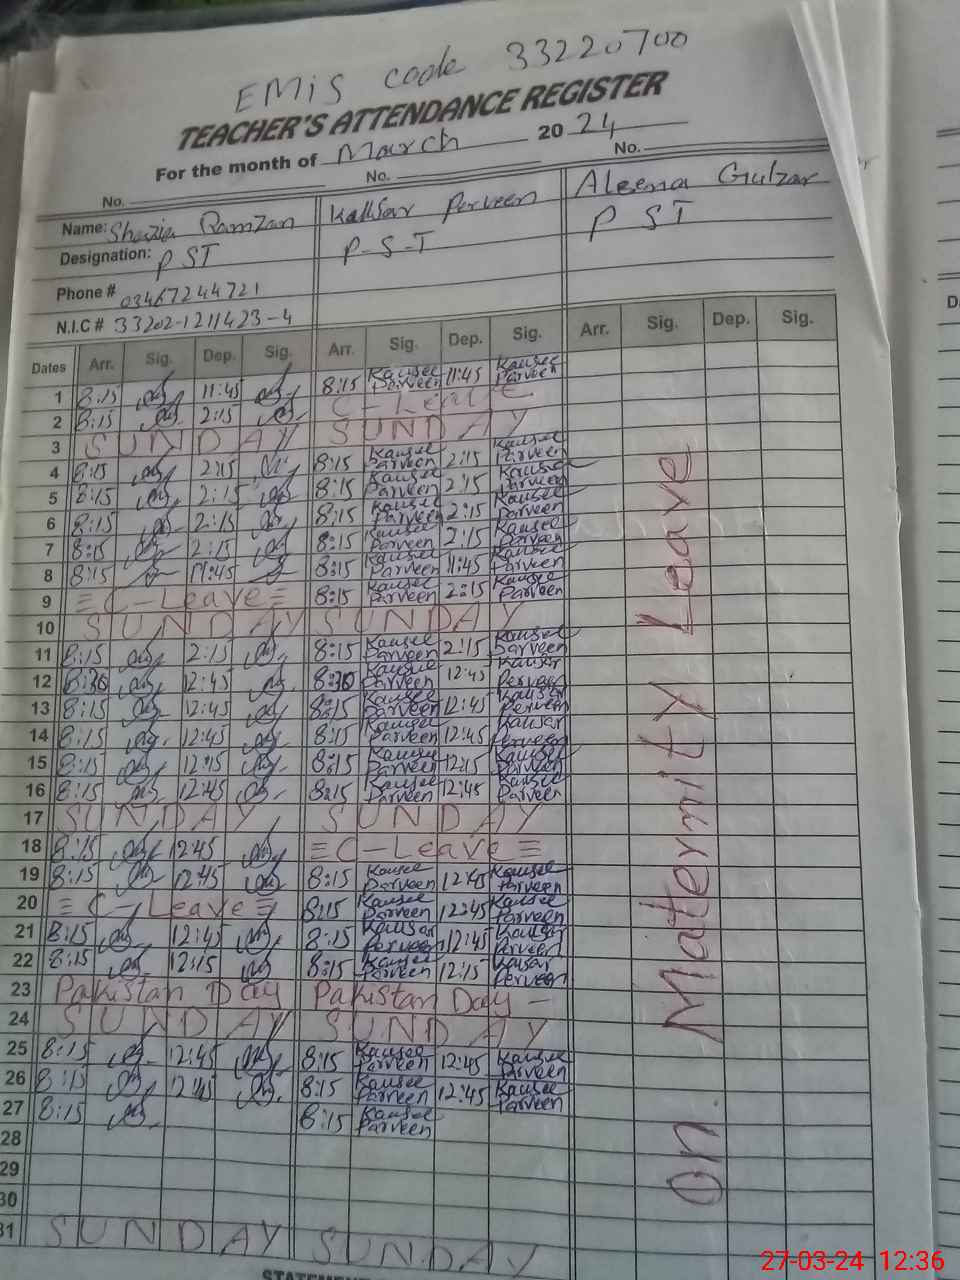 EMiS code 33220700
TEACHER'S ATTENDANCE REGISTER
For the month of March 20 24
No. No. No.
Name: Shazia Ramzan Kausar Perveen Aleena Gulzar
Designation: P ST P-S-T P ST
Phone # 03467244721
N.I.C # 33202-1211423-4
Dates Arr. Sig. Dep. Sig. Arr. Sig. Dep. Sig. Arr. Sig. Dep. Sig.
1 8:15 11:45 8:15 Kausar Parveen 11:45 Kausar Parveen
2 8:15 2:15 C-Leave
3 SUNDAY SUNDAY
4 8:15 2:15 8:15 Kausar Parveen 2:15 Kausar Parveen
5 8:15 2:15 8:15 Kausar Parveen 2:15 Kausar Parveen
6 8:15 2:15 8:15 Kausar Parveen 2:15 Kausar Parveen
7 8:15 2:15 8:15 Kausar Parveen 2:15 Kausar Parveen
8 8:15 11:45 8:15 Kausar Parveen 11:45 Kausar Parveen
9 C-Leave 8:15 Kausar Parveen 2:15 Kausar Parveen
10 SUNDAY SUNDAY
11 8:15 2:15 8:15 Kausar Parveen 2:15 Kausar Parveen
12 8:30 12:45 8:30 Kausar Parveen 12:45 Kausar Perveen
13 8:15 12:45 8:15 Kausar Parveen 12:45 Kausar Perveen
14 8:15 12:45 8:15 Kausar Parveen 12:45 Kausar Perveen
15 8:15 12:15 8:15 Kausar Parveen 12:15 Kausar Parveen
16 8:15 12:45 8:15 Kausar Parveen 12:45 Kausar Parveen
17 SUNDAY SUNDAY
18 8:15 12:45 C-Leave
19 8:15 12:45 8:15 Kausar Parveen 12:45 Kausar Parveen
20 C-Leave 8:15 Kausar Parveen 12:45 Kausar Parveen
21 8:15 12:45 8:15 Kausar Perveen 12:45 Kausar Perveen
22 8:15 12:15 8:15 Kausar Parveen 12:15 Kausar Perveen
23 Pakistan Day Pakistan Day -
24 SUNDAY SUNDAY
25 8:15 12:45 8:15 Kausar Parveen 12:45 Kausar Parveen
26 8:15 12:45 8:15 Kausar Parveen 12:45 Kausar Parveen
27 8:15 8:15 Kausar Parveen
28
29
30
31 SUNDAY SUNDAY
On Maternity Leave
27-03-24 12:36